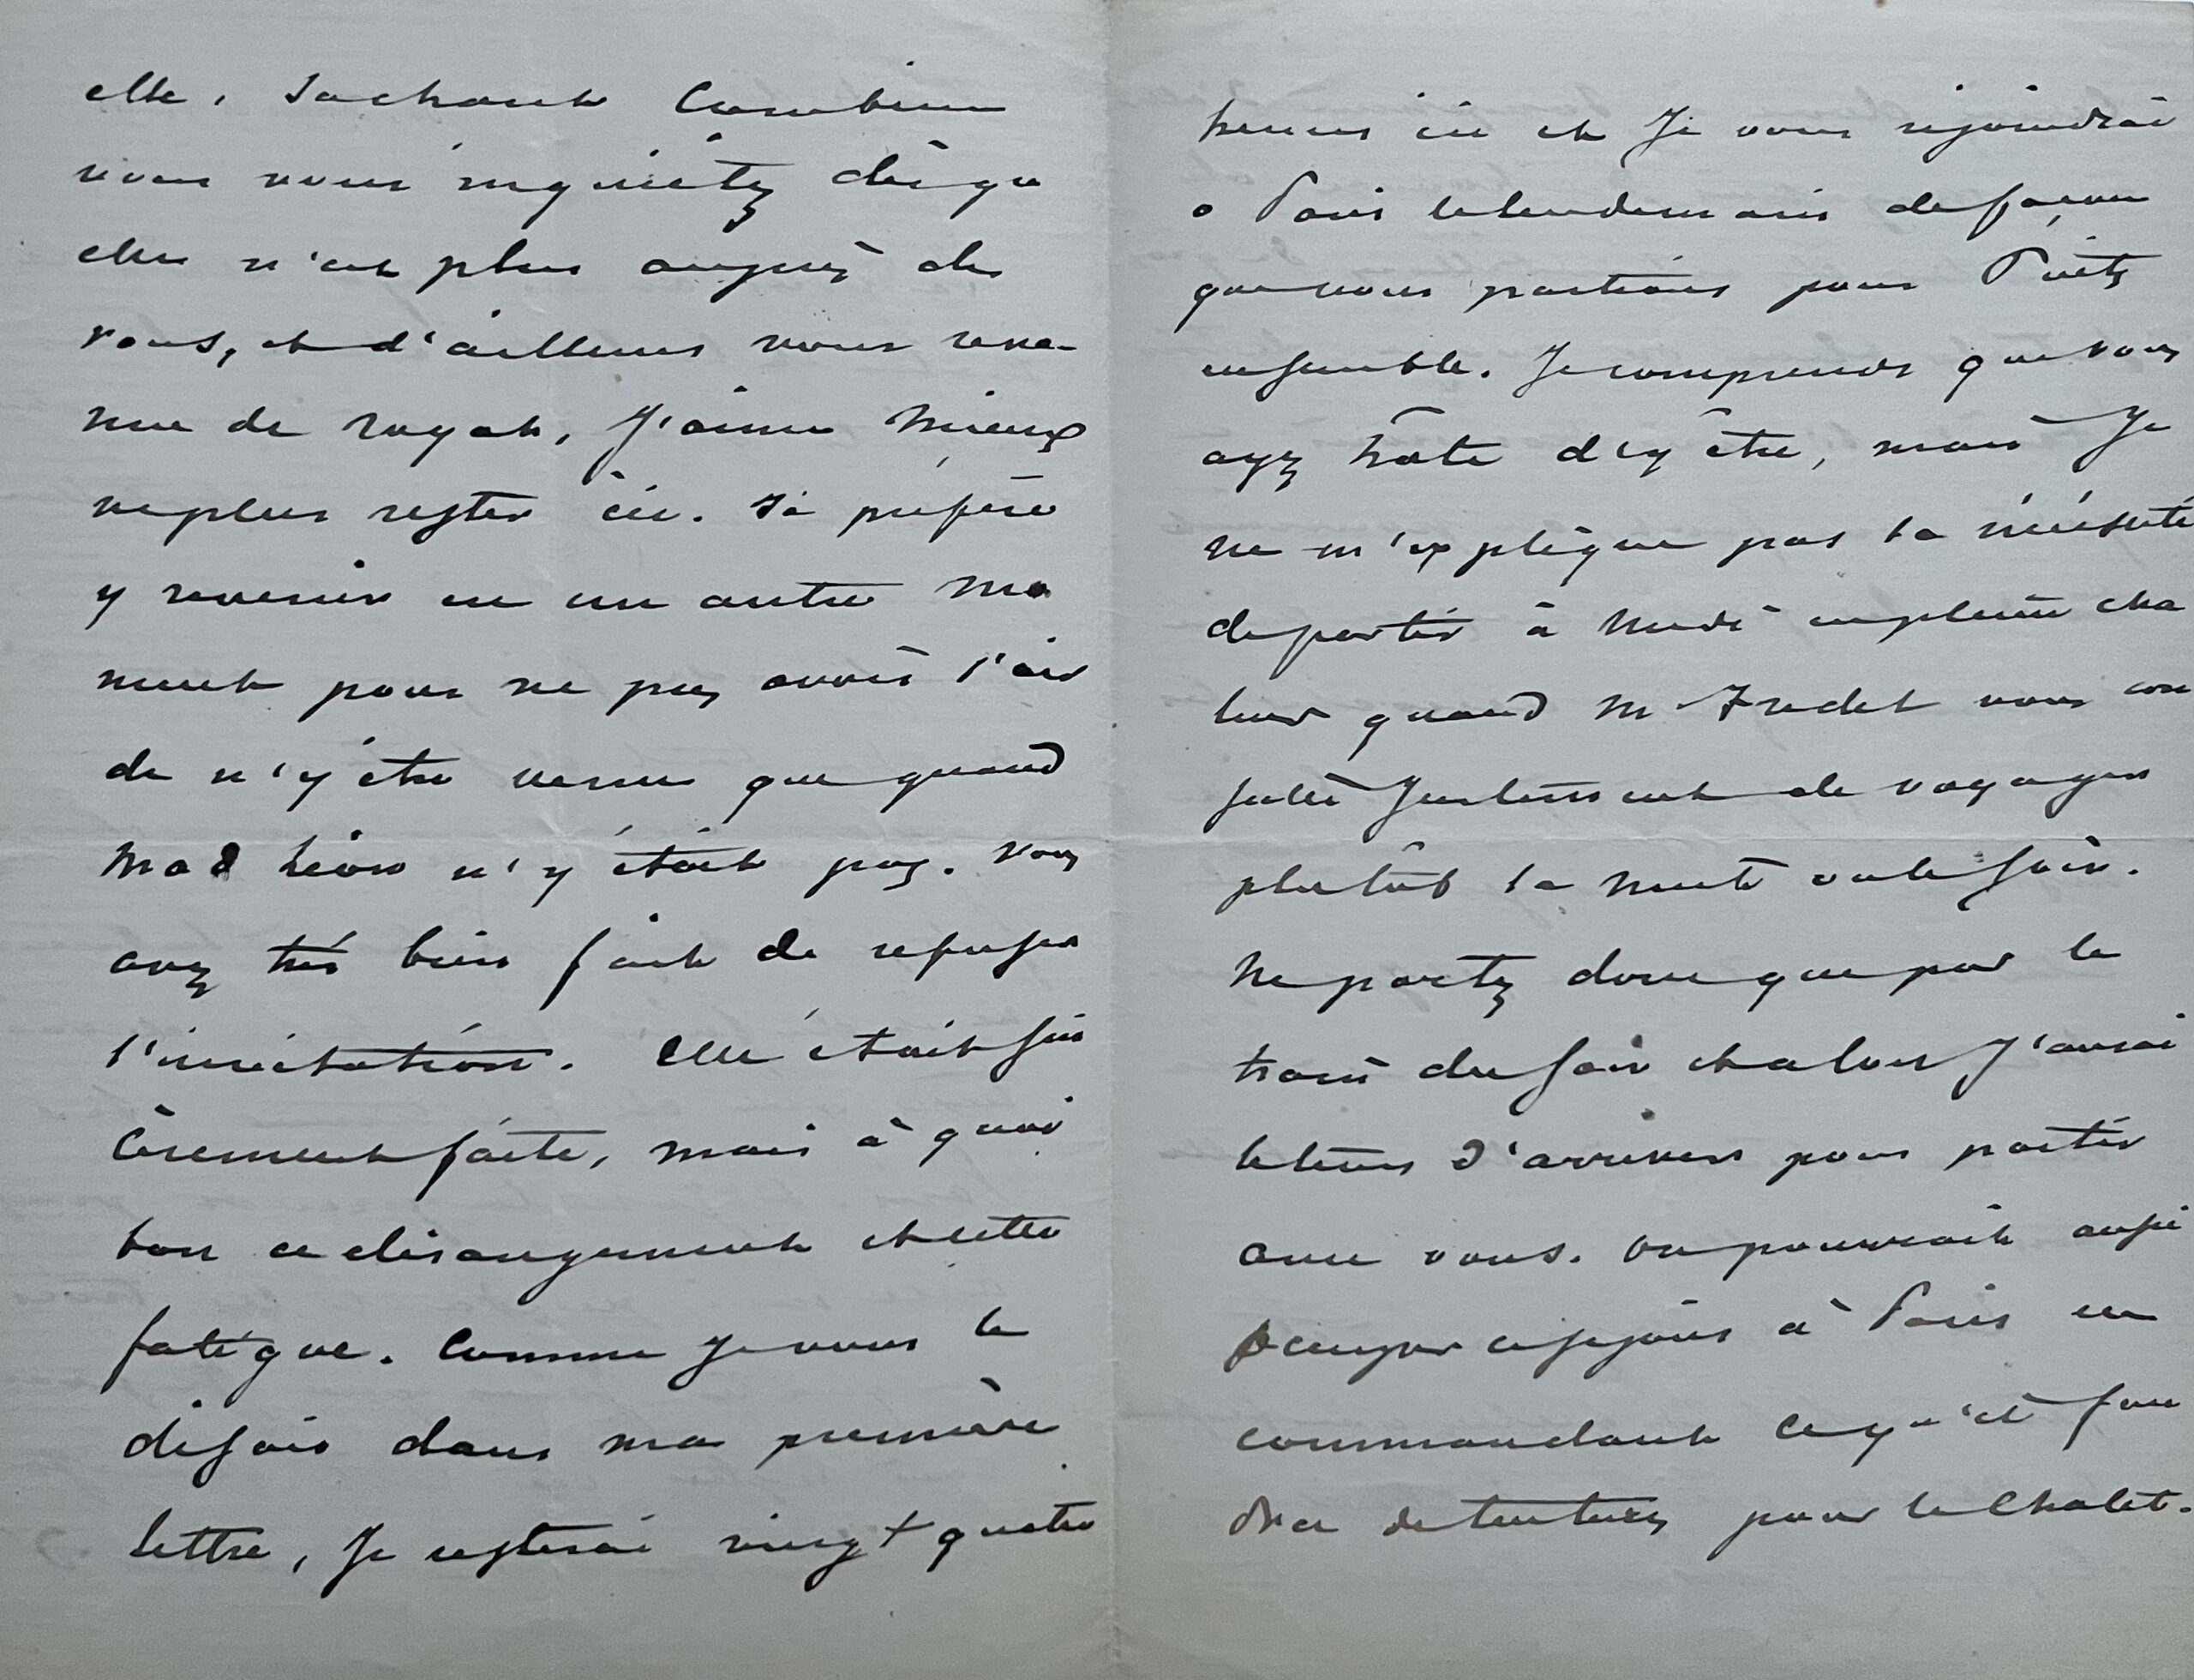 elle, sachant combien
vous vous inquiétez dès qu
elle n'est plus auprès de
vous, et d'ailleurs vous reve-
nue de royat, j'aime mieux
ne plus rester ici. Je préfère
y revenir en un autre mo
ment pour ne pas avoir l'air
de n'y être venu que quand
Mad Léon n'y était pas. Vous
avez très bien fait de refuser
l'invitation. Elle était sin
cèrement faite, mais à quoi
bon ce dérangement et cette
fatigue. Comme je vous le
disais dans ma première
lettre, je resterai vingt quatre
heures ici et je vous rejoindrai
a Paris le lendemain de façon
que nous partions pour
ensemble. Je comprends que vous
ayez hâte d'y être, mais je
ne m'explique pas la nécessité
de partir à midi en pleine cha
leur quand M Fredet vous con
seille justement de voyager
plutôt la nuit ou le soir.
Ne partez donc que par le
train du soir et alors j'aurai
le temps d'arriver pour partir
avec vous. On pourrait aussi
occuper ce séjour à Paris en
commandant ce qu'il fau
dra de tentures pour le chalet.